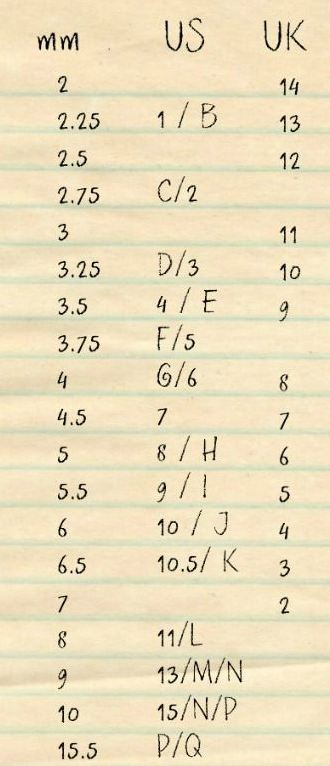 mm US UK
2 14
2.25 1 / B 13
2.5 12
2.75 C/2
3 11
3.25 D/3 10
3.5 4 / E 9
3.75 F/5
4 G/6 8
4.5 7 7
5 8 / H 6
5.5 9 / I 5
6 10 / J 4
6.5 10.5/ K 3
7 2
8 11/L
9 13/M/N
10 15/N/P
15.5 P/Q